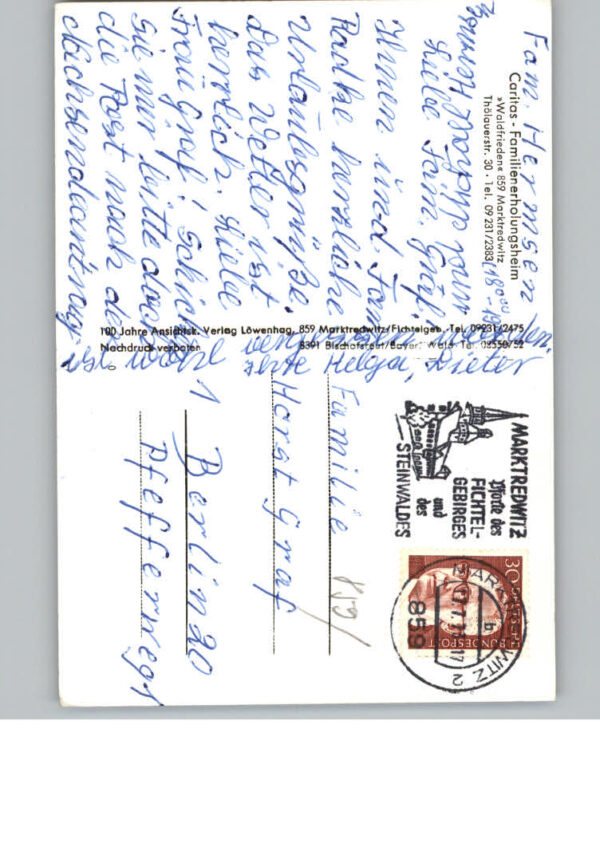 Fam. Hermsen
Caritas - Familienerholungsheim
»Waldfrieden« 859 Marktredwitz
Thölauerstr. 30 · Tel. 09231/2383
Liebe Fam. Graf
Ihnen und Fam.
Radke herzliche
Urlaubsgrüße.
Das Wetter ist
herrlich. Liebe
Frau Graf! Schicken
Sie mir bitte doch
die Post nach der
Nachsendeantrag
ist wohl vergessen worden.
Helga, Dieter
100 Jahre Ansichtsk. Verlag Löwenhag, 859 Marktredwitz/Fichtelgeb. Tel. 09231/2475
Nachdruck verboten 8391 Bischofsreut/Bayer. Wald Tel. 08550/52
MARKTREDWITZ
Pforte des
FICHTEL-
GEBIRGES
und
des
STEINWALDES
30 DEUTSCHE BUNDESPOST
MARKTREDWITZ 2
b
859
Familie
Horst Graf
1 Berlin 20
Pfefferweg 1
859/